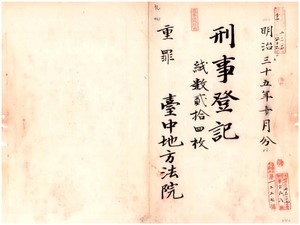 明治三十五年十月分
刑事登記
紙数貳拾四枚
重罪
臺中地方法院